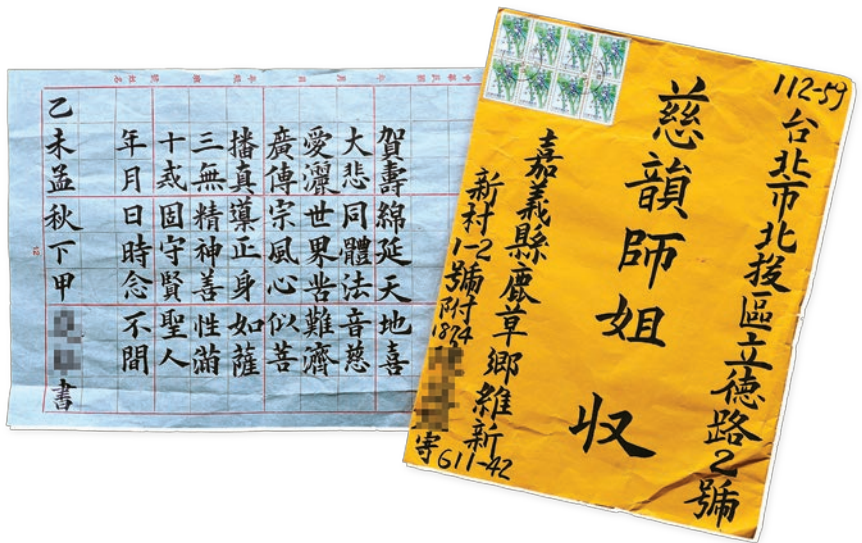 賀壽綿延天地喜
大悲同體法音慈
愛灑世界苦難濟
廣傳宗風心似菩
播真導正身如薩
三無精神善性滿
十戒固守賢聖人
年月日時念不間
乙未孟秋下甲 書
112-59
台北市北投區立德路2號
慈韻師姐 収
嘉義縣鹿草鄉維新
新村1-2號附1874
寄
611-42